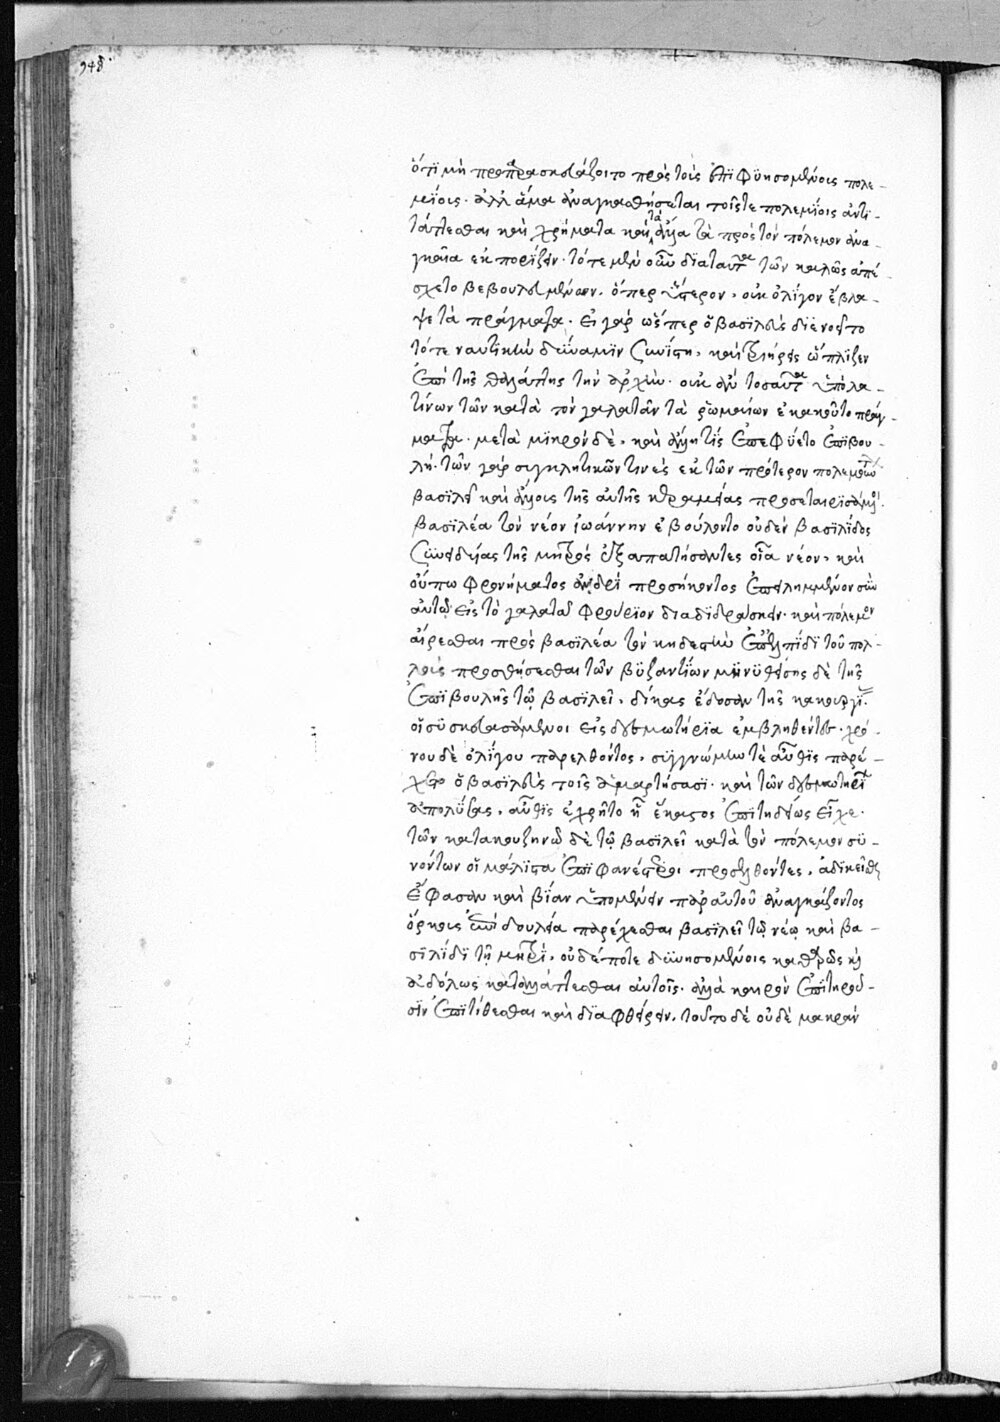 948
ὅτι μὴ προπαρασκευάζοιτο πρὸς τοὺς ἐπιφυησομένους πολε-
μίους. ἀλλ' ἅμα ἀναγκασθήσεται τοῖς τε πολεμίοις ἀντι-
τάττεσθαι καὶ χρήματα καὶ τὰ ἄλλα τὰ πρὸς τὸν πόλεμον ἀνα-
γκαῖα ἐκπορίζειν. τότε μὲν οὖν διὰ ταῦτα τῶν καλῶς ἀπέ-
σχετο βεβουλευμένων. ὅπερ ὕστερον, οὐκ ὀλίγον ἔβλα-
ψε τὰ πράγματα. εἰ γὰρ ὥσπερ ὁ βασιλεὺς διενοεῖτο
τότε ναυτικὴν δύναμιν συνίστη, καὶ τριήρεις ὥπλιζεν
ἐπὶ τῆς θαλάττης τὴν ἀρχὴν. οὐκ ἂν τοσαῦτα ὑπὸ λα-
τίνων τῶν κατὰ τὸν γαλατᾶν τὰ ῥωμαίων ἐκακοῦτο πράγ-
ματα. μετὰ μικρὸν δὲ, καὶ ἄλλη τίς ἐπεφύετο ἐπιβου-
λή. τῶν γὰρ συγκλητικῶν τινες ἐκ τῶν πρότερον πολεμούντων
βασιλεῖ καὶ ἄλλους τῆς αὐτῆς προσεταιρισάμενοι.
βασιλέα τὸν νέον ἰωάννην ἐβούλοντο οὐδὲν βασιλίδος
συνειδυίας τῆς μητρὸς ἐξαπατήσαντες οἷα νέον, καὶ
οὔπω φρονήματος ἀνδρὶ προσήκοντος ἐπειλημμένον σὺν
αὐτῷ εἰς τὸ γαλατᾶ φρούριον διαδιδράσκειν. καὶ πόλεμον
αἴρεσθαι πρὸς βασιλέα τὸν κηδεστὴν ἐπ' ἐλπίδι τοῦ πολ-
λοὺς προσθήσεσθαι τῶν βυζαντίων μηνυθείσης δὲ τῆς
ἐπιβουλῆς τῷ βασιλεῖ, δίκας ἔδοσαν τῆς κακουργίας
οἱ συσκευασάμενοι εἰς δεσμωτήρια ἐμβληθέντες. χρό-
νου δὲ ὀλίγου παρελθόντος, συγγνώμην τὲ αὖθις παρέ-
χετο ὁ βασιλεὺς τοῖς ἁμαρτήσασι. καὶ τῶν δεσμωτηρίων
ἀπολύσας, αὖθις ἐχρῆτο ᾗ ἕκαστος ἐπιτηδείως εἶχε.
τῶν κατακουζηνῷ δὲ τῷ βασιλεῖ κατὰ τὸν πόλεμον συ-
νόντων οἱ μάλιστα ἐπιφανέστεροι προσελθόντες, ἀδικεῖσθαι
ἔφασαν καὶ βίαν ὑπομένειν παρ' αὐτοῦ ἀναγκάζοντος
ὅρκους ἐπὶ δουλεία παρέχεσθαι βασιλεῖ τῷ νέῳ καὶ βα-
σιλίδι τῇ μητρὶ, οὐδέποτε δυνησομένοις καθαρῶς καὶ
ἀδόλως καταλλάττεσθαι αὐτοῖς. ἀλλὰ καιρὸν ἐπιτηροῦ-
σιν ἐπιτίθεσθαι καὶ διαφθείρειν. τοῦτο δὲ οὐδὲ μακρὰν